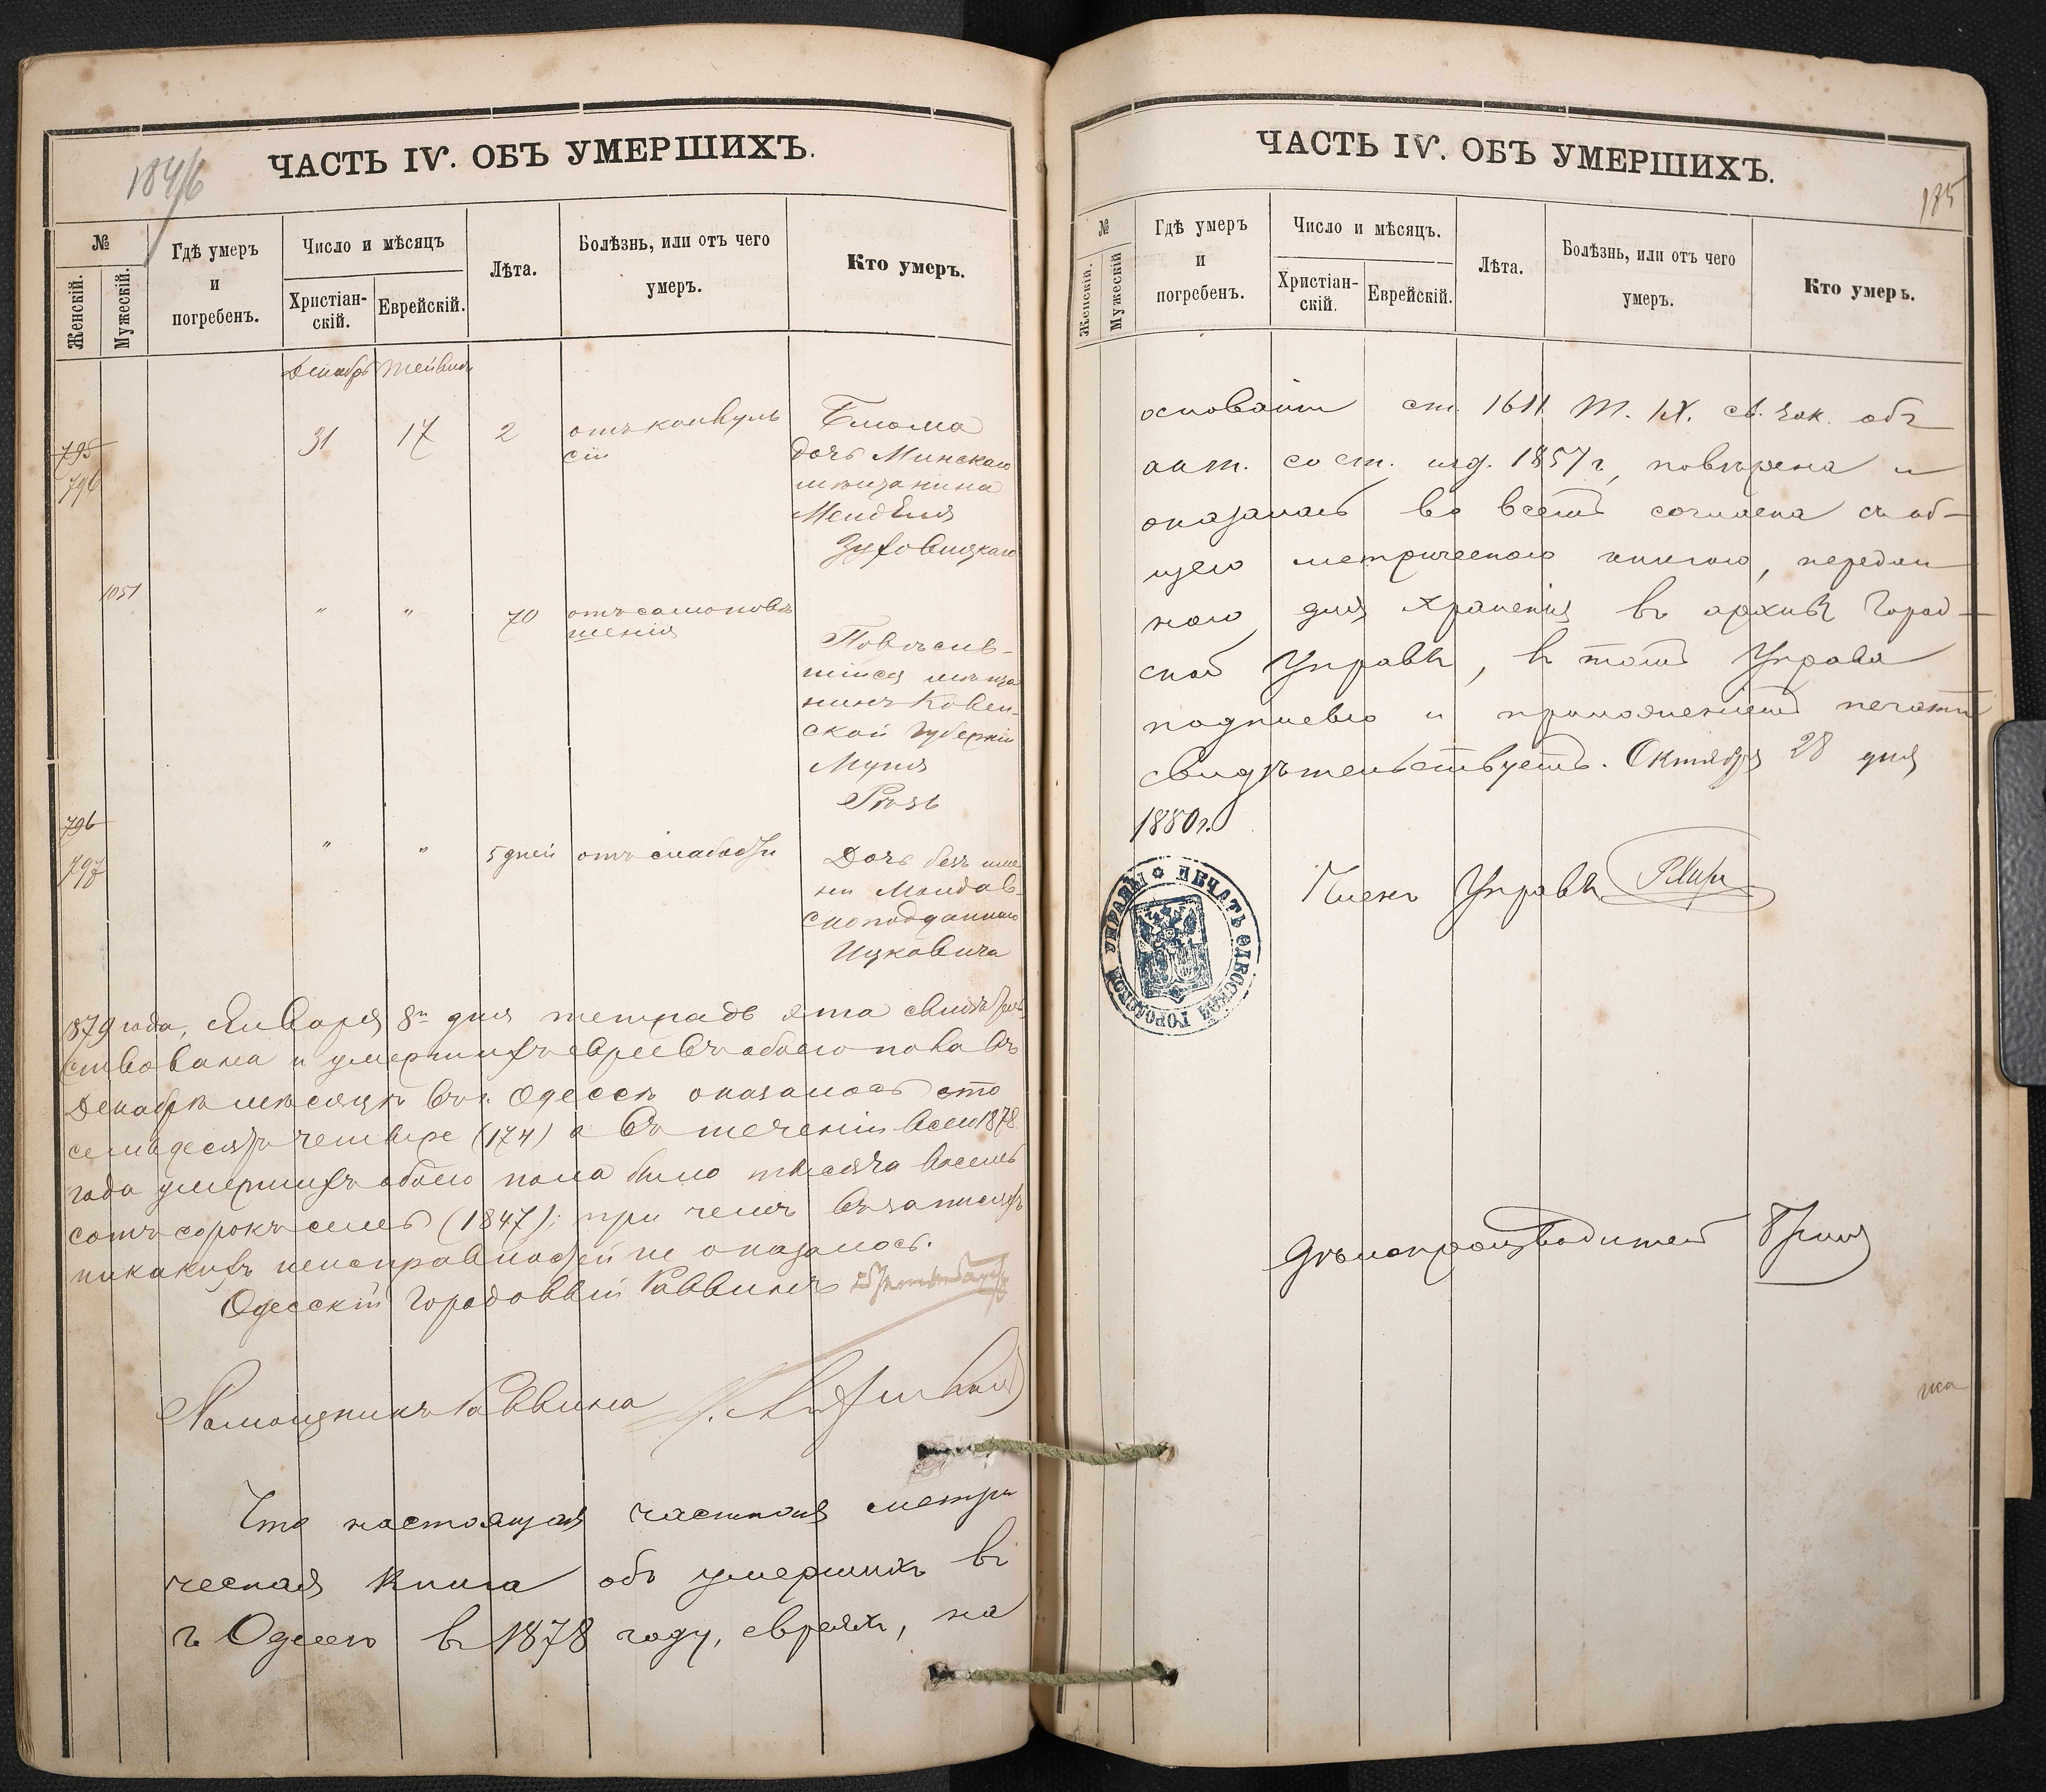 ЧАСТЬ IV. ОБЪ УМЕРШИХЪ.
184/6
№
Женскій.
Мужескій.
Гдѣ умеръ
и
погребенъ.
Число и мѣсяцъ
Христіан-
скій.
Еврейскій.
Лѣта.
Болѣзнь, или отъ чего
умеръ.
Кто умеръ.
Декабрь
795
796
31
17
2
отъ конвуль
сіи
Блюма
дочь Минскаго
мѣщанина
Менделя
1051
"
"
70
отъ самоповѣ
шенія
Повѣсив-
шійся мѣща
нинъ Ковен-
ской губерніи
796
797
"
"
5 дней
отъ слабости
Дочь безъ име
ни Молдав-
скоподданнаго
Ицковича
1879 года, Января 8го дня тетрадь эта свидѣтель
ствована и умершихъ евреевъ обоего пола въ
Декабрѣ мѣсяцѣ въ г. Одессѣ оказалось сто
семьдесятъ четыре (174) а въ теченіи всего 1878
года умершихъ обоего пола было тысяча восемь
сотъ сорокъ семь (1847); при чемъ въ записяхъ
никакихъ неисправностей не оказалось.
Одесскій Городовый Раввинъ
Помощникъ Раввина
Что настоящая частная метри
ческая книга объ умершихъ въ
г. Одессѣ въ 1878 году, евреяхъ, на
ЧАСТЬ IV. ОБЪ УМЕРШИХЪ.
175
№
Женскій.
Мужескій
Гдѣ умеръ
и
погребенъ.
Число и мѣсяцъ.
Христіан-
скій.
Еврейскій.
Лѣта.
Болѣзнь, или отъ чего
умеръ.
Кто умеръ.
основаніи ст. 1611 т. IX. св. зак. объ
сост. изд. 1857 г, повѣрена и
оказалась во всемъ согласна съ об-
щею метрическою книгою, передан
ною для храненія въ архивъ Город-
ской Управы, въ томъ Управа
подписью и приложеніемъ печати
свидѣтельствуетъ. Октября 28 дня
1880 г.
ПЕЧАТЬ ОДЕССКОЙ ГОРОДСКОЙ УПРАВЫ
Членъ Управы
Дѣлопроизводитель